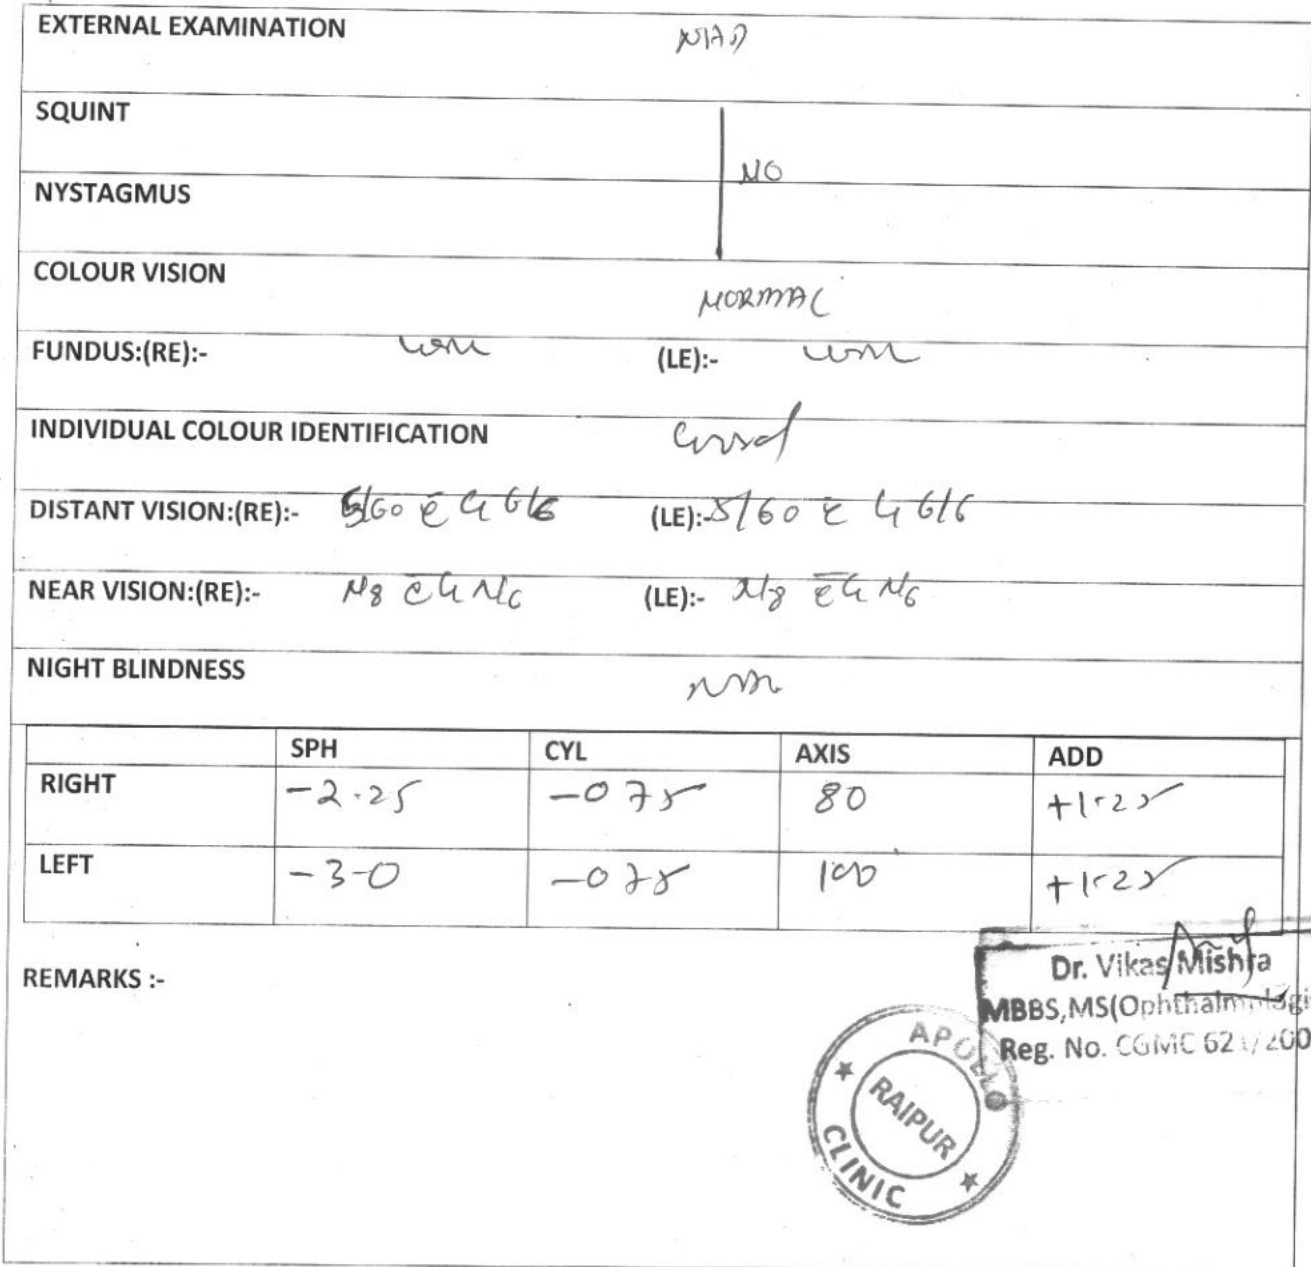 EXTERNAL EXAMINATION NAD
SQUINT
NO
NYSTAGMUS
COLOUR VISION NORMAL
FUNDUS:(RE):- (LE):-
INDIVIDUAL COLOUR IDENTIFICATION
DISTANT VISION:(RE):- 5/60 c̄ G 6/6 (LE):- 5/60 c̄ G 6/6
NEAR VISION:(RE):- N8 c̄ G N6 (LE):- N8 c̄ G N6
NIGHT BLINDNESS
SPH CYL AXIS ADD
RIGHT -2.25 -075 80 +1.25
LEFT -3-0 -075 100 +1.25
REMARKS :-
Dr. Vikas Mishra
MBBS,MS(Ophthalmologi
Reg. No. CGMC 621/200
APOLLO
RAIPUR
CLINIC